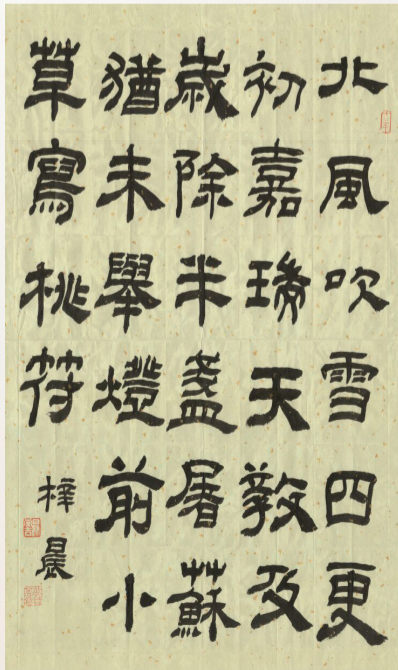 北風吹雪四更
初嘉瑞天教及
歲除半盞屠蘇
猶未舉燈前小
草寫桃符
梓晨